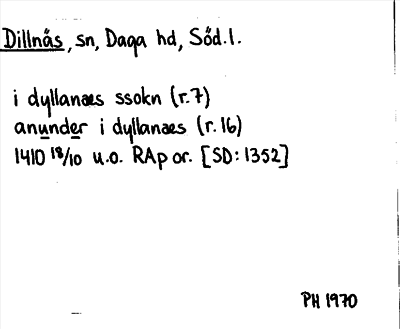 Dillnäs, sn, Daga hd, Söd.l.
i dyllanæs ssokn (r.7)
anunder i dyllanæs (r.16)
1410 18/10 u.o. RAp or. [SD: 1352]
PH 1970